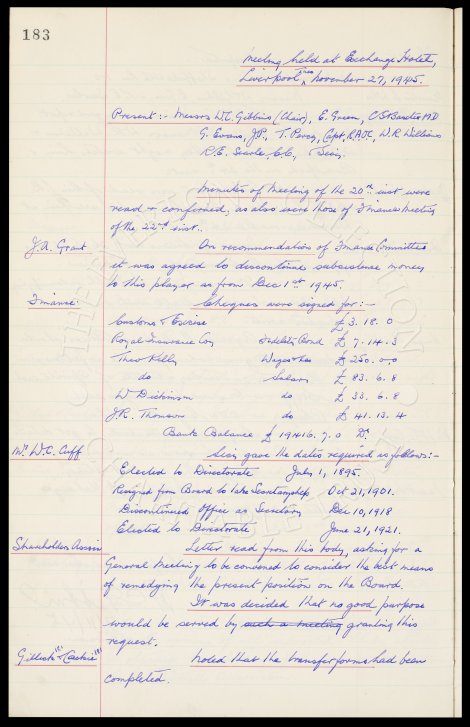 183
Meeting held at Exchange Hotel,
Liverpool, Tues November 27, 1945.
Present:- Messrs W.C. Gibbins (Chair), E. Green, C.S. Baxter MD
G. Evans, J.P., T. Percy, Capt, R.A.O.C, W.R. Williams
R.E. Searle, &c, Secy.
Minutes of Meeting of the 20th inst were
read & confirmed, as also were those of Finance Meeting
of the 22nd inst.
J.A. Grant On recommendation of Finance Committee
it was agreed to discontinue subsistence money
to this player as from Dec 1st 1945.
Finance: Cheques were signed for:-
Customs & Excise £ 3. 18. 0
Royal Insurance Coy Fidelity Bond £ 7. 14. 3
Theo Kelly Wages &c £ 250. 0. 0
do Salary £ 83. 6. 8
W Dickinson do £ 33. 6. 8
J.R. Thomson do £ 41. 13. 4
Bank Balance £ 19416. 7. 0 Dr.
Mr W.C. Cuff Secy gave the dates required as follows:-
Elected to Directorate July 1, 1895.
Resigned from Board to take Secretaryship Oct 21, 1901.
Discontinued office as Secretary Dec 10, 1918
Elected to Directorate June 21, 1921.
Shareholders Assoc Letter read from this body, asking for a
General Meeting to be convened to consider the best means
of remedying the present position on the Board.
It was decided that no good purpose
would be served by such a meeting granting this
request.
Gillick & Noted that the transfer forms had been
completed.